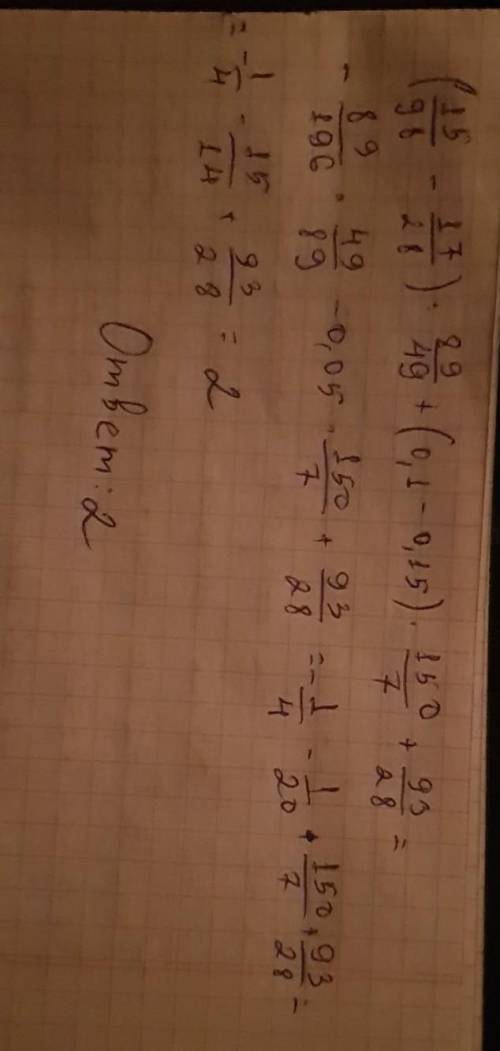 (15/98 - 17/28) · 89/49 + (0,1 - 0,15) · 150/7 + 93/28 =
- 89/196 · 49/89 - 0,05 · 150/7 + 93/28 = - 1/4 - 1/20 · 150/7 + 93/28 =
= - 1/4 - 15/14 + 93/28 = 2
Ответ: 2